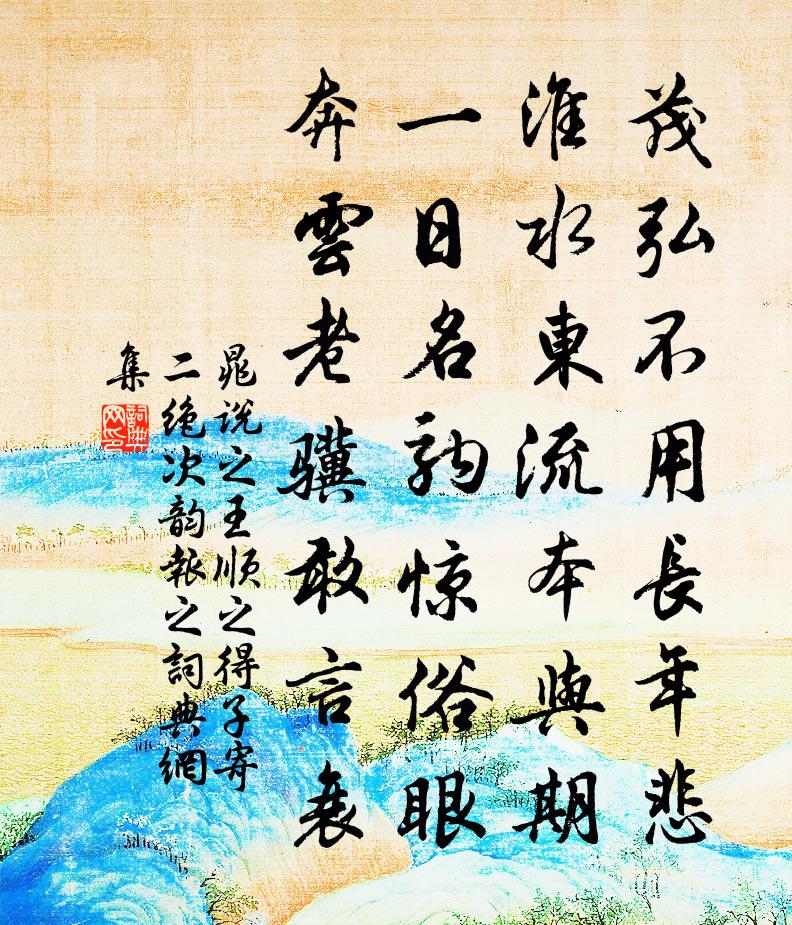 茂弘不用長年悲
淮水東流本與期
一日名駒惊俗眼
奔雲老驥敢言衰
晁说之王顺之得子寄
二绝次韵報之詞典網
集
詞典网印